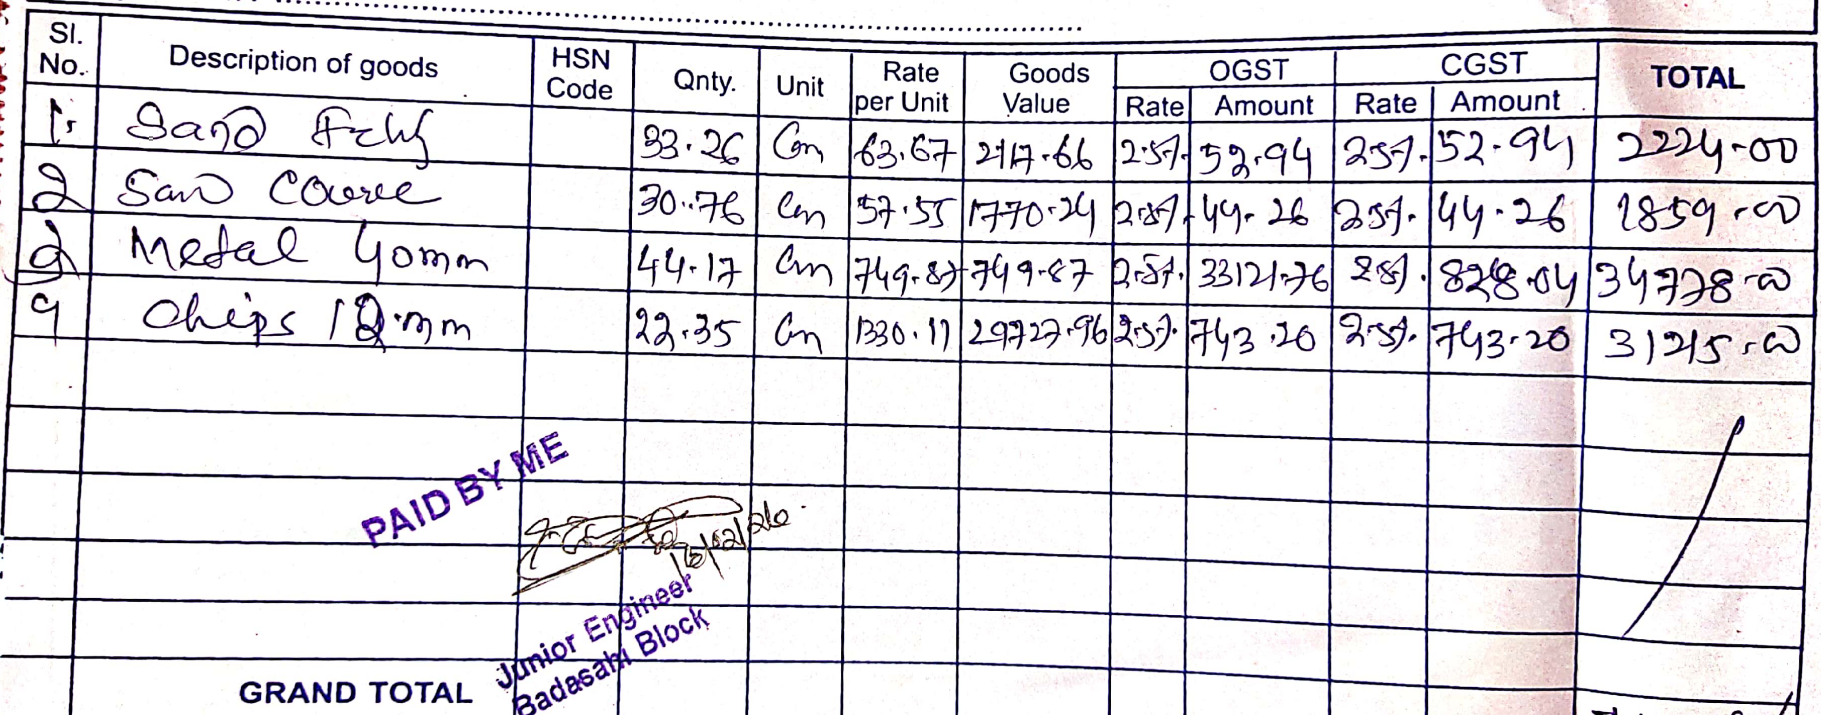 Sl. No. Description of goods HSN Code Qnty. Unit Rate per Unit Goods Value OGST Rate Amount CGST Rate Amount TOTAL
1. Sand 33.26 Cm 63.67 2117.66 2.5%. 52.94 2.5%. 52.94 2224-00
2 San Course 30.76 Cm 57.55 1770.24 2.5%. 44.26 2.5%. 44.26 1859-00
Metal 40mm 44.17 Cm 749.87 749.87 2.5%. 33121.76 2.5%. 828.04 34778-00
4 Chips 12mm 22.35 Cm 1330.11 29727.96 2.5%. 743.20 2.5%. 743.20 31215-00
PAID BY ME
Junior Engineer
Badasahi Block
GRAND TOTAL